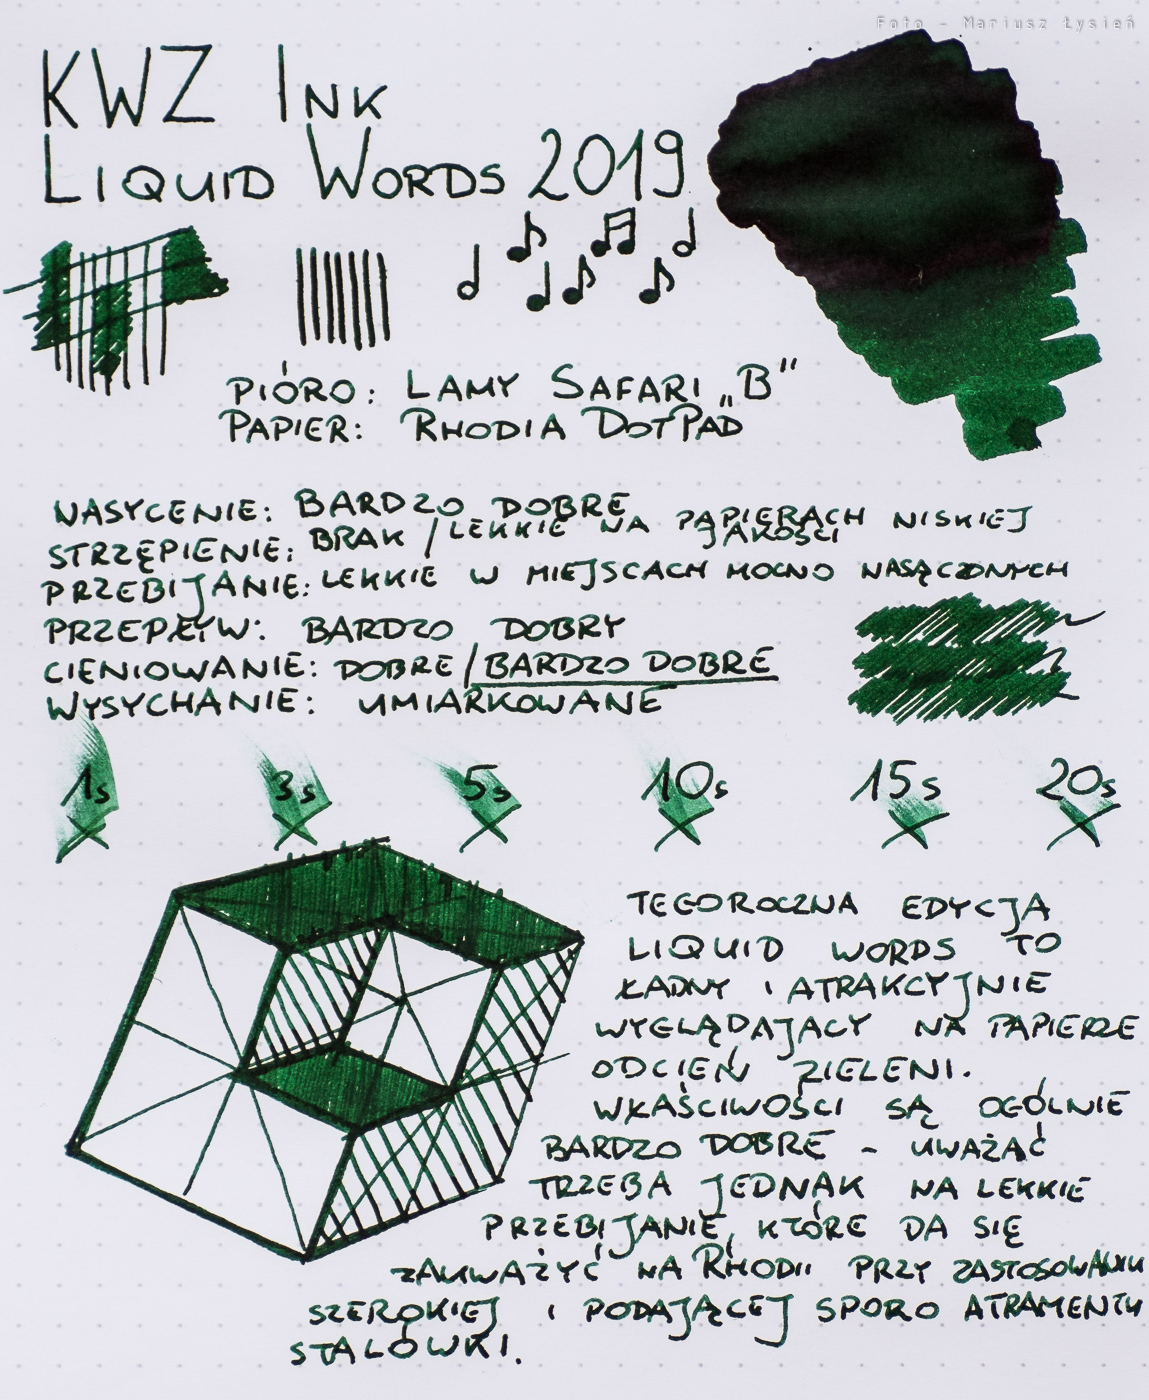 Foto - Mariusz Łysień
KWZ INK
LIQUID WORDS 2019
PIÓRO: LAMY SAFARI „B"
PAPIER: RHODIA DOTPAD
NASYCENIE: BARDZO DOBRE
STRZĘPIENIE: BRAK / LEKKIE NA PAPIERACH NISKIEJ
JAKOŚCI
PRZEBIJANIE: LEKKIE W MIEJSCACH MOCNO NASĄCZONYCH
PRZEPŁYW: BARDZO DOBRY
CIENIOWANIE: DOBRE / BARDZO DOBRE
WYSYCHANIE: UMIARKOWANE
1s 3s 5s 10s 15s 20s
TEGOROCZNA EDYCJA
LIQUID WORDS TO
ŁADNY I ATRAKCYJNIE
WYGLĄDAJACY NA PAPIERZE
ODCIEŃ ZIELENI.
WŁAŚCIWOŚCI SĄ OGÓLNIE
BARDZO DOBRE - UWAŻAĆ
TRZEBA JEDNAK NA LEKKIE
PRZEBIJANIE, KTÓRE DA SIĘ
ZAUWAŻYĆ NA RHODII PRZY ZASTOSOWANIU
SZEROKIEJ I PODAJĄCEJ SPORO ATRAMENTU
STALÓWKI.